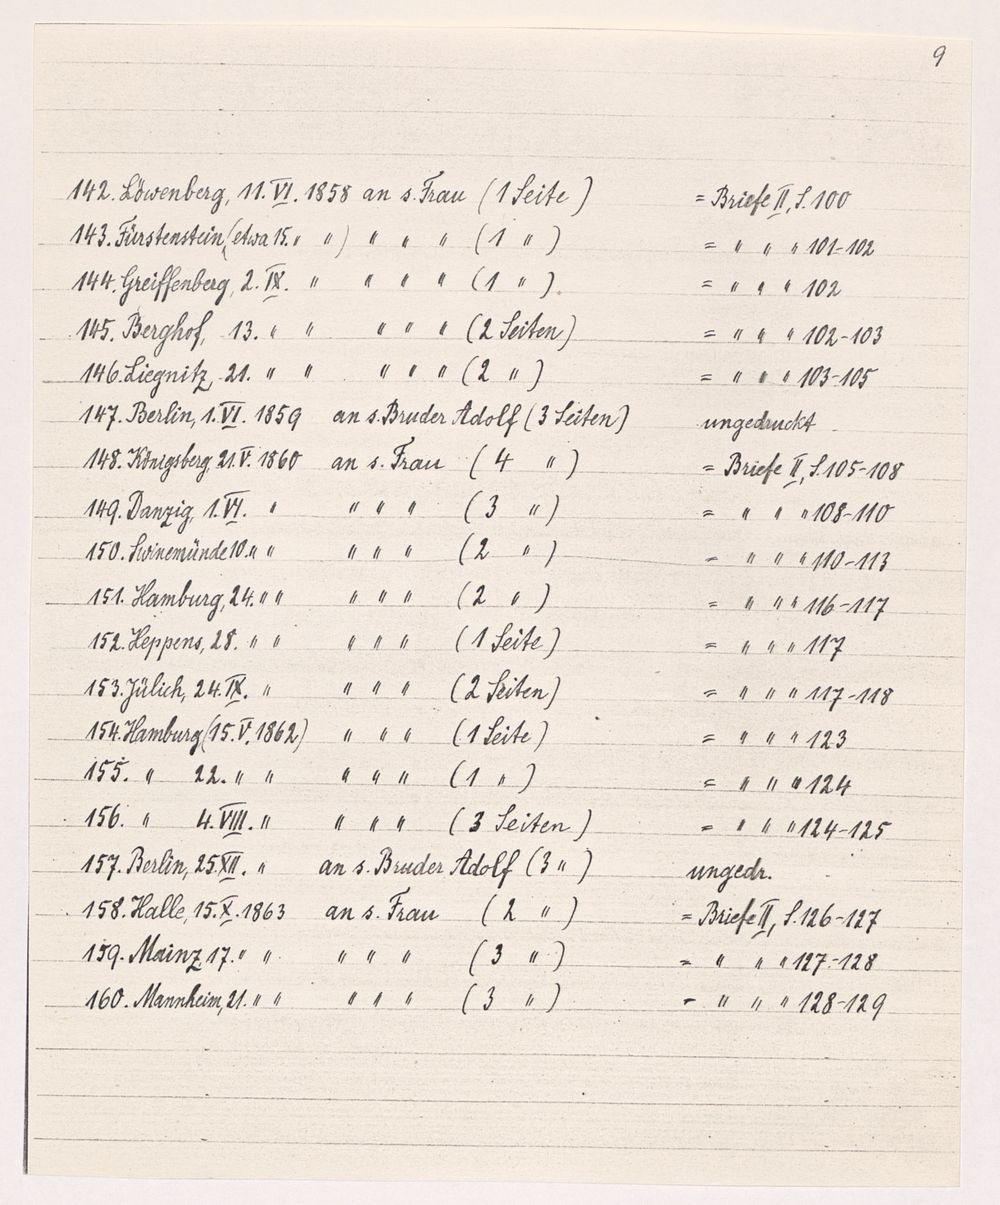 9
142. Löwenberg, 11. VI. 1858 an s. Frau (1 Seite) = Briefe II, S. 100
143. Fürstenstein, (etwa 15. " ") " " " (1 ") = " " " 101-102
144. Greiffenberg, 2. IX. " " " " (1 "). = " " " 102
145. Berghof, 13. " " " " " (2 Seiten) = " " " 102-103
146. Liegnitz, 21. " " " " " (2 ") = " " " 103-105
147. Berlin, 1. VI. 1859 an s. Bruder Adolf (3 Seiten) ungedruckt
148. Königsberg, 21. V. 1860 an s. Frau (4 ") = Briefe II, S. 105-108
149. Danzig, 1. VI. " " " " (3 ") = " " " 108-110
150. Swinemünde 10. " " " " " (2 ") = " " " 110-113
151. Hamburg, 24. " " " " " (2 ") = " " " 116-117
152. Heppens, 28. " " " " " (1 Seite) = " " " 117
153. Jülich, 24. IX. " " " " (2 Seiten) = " " " 117-118
154. Hamburg (15. V. 1862) " " " (1 Seite) = " " " 123
155. " 22. " " " " " (1 ") = " " " 124
156. " 4. VIII. " " " " (3 Seiten) = " " " 124-125
157. Berlin, 25. XII. " an s. Bruder Adolf (3 ") ungedr.
158. Halle, 15. X. 1863 an s. Frau (2 ") = Briefe II, S. 126-127
159. Mainz, 17. " " " " " (3 ") = " " " 127-128
160. Mannheim, 21. " " " " " (3 ") = " " " 128-129